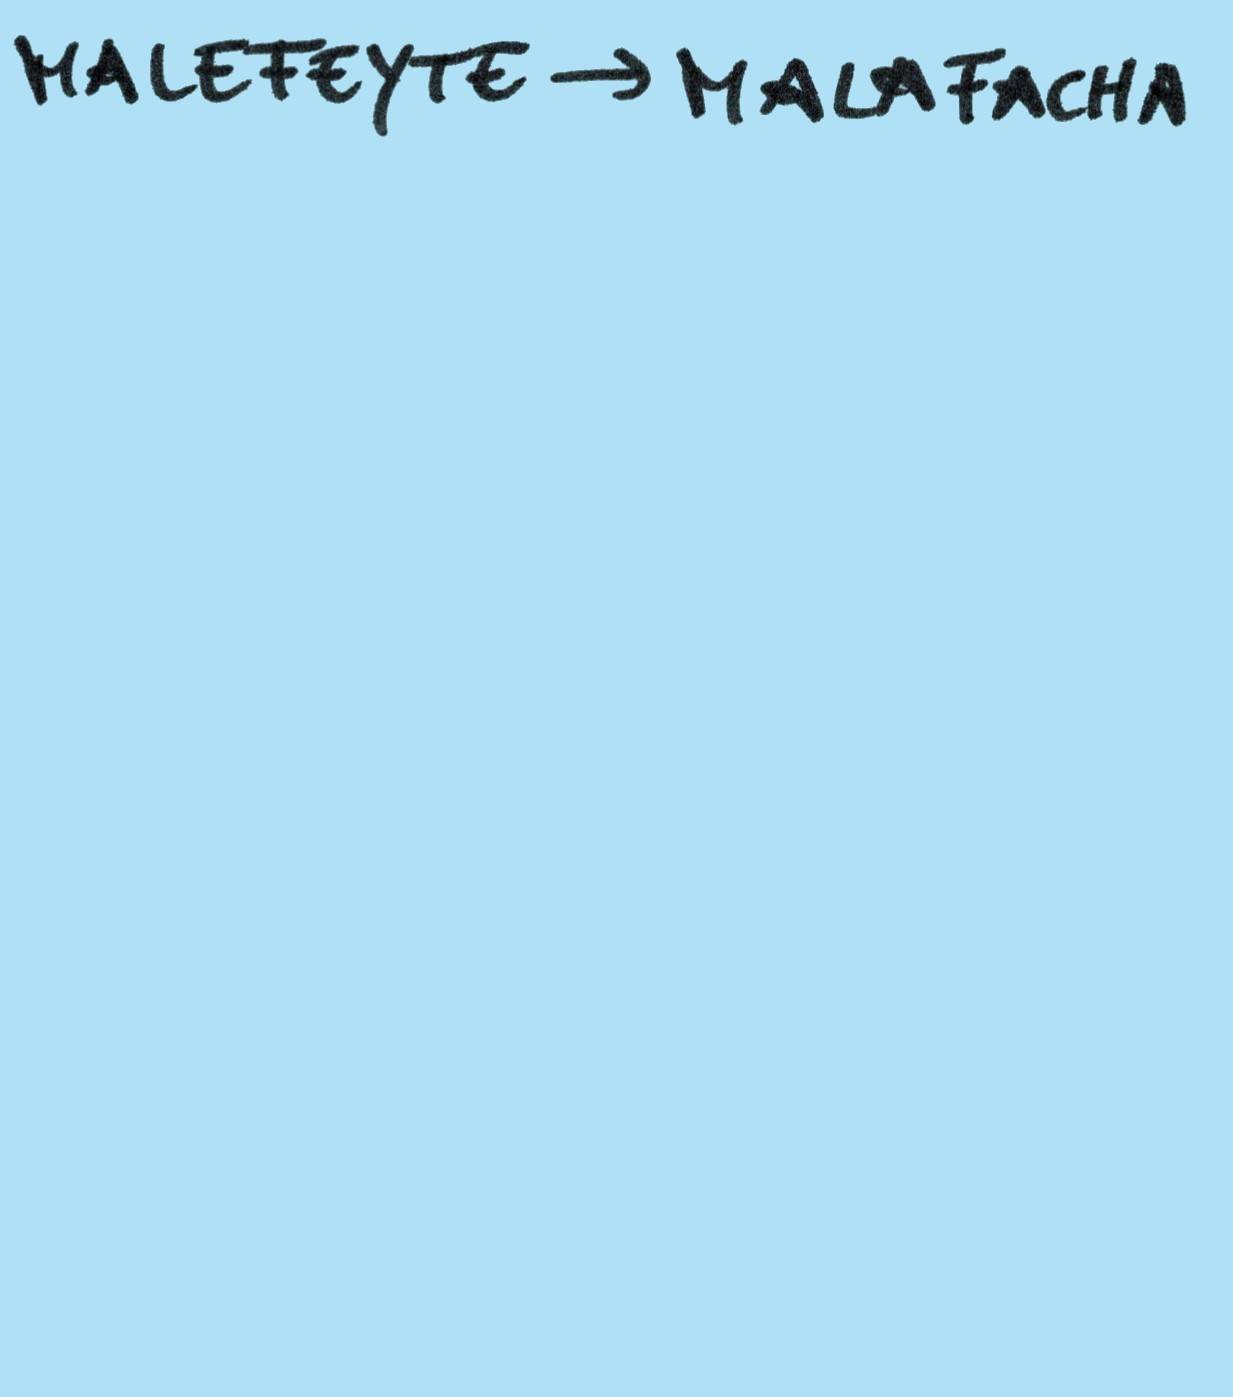 MALEFEYTE → MALAFACHA